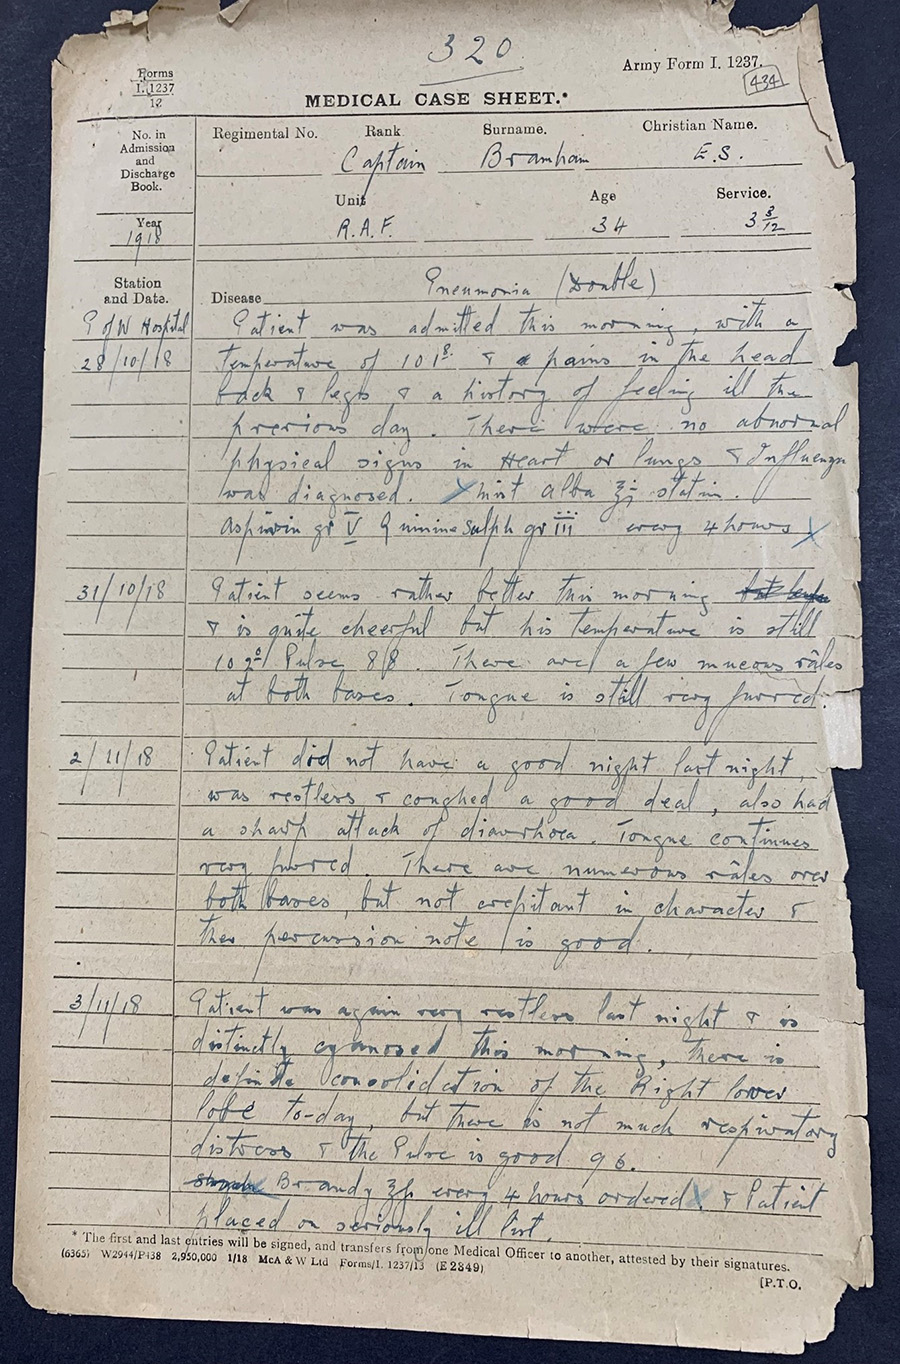 320
Forms
I. 1237
12
Army Form I. 1237.
434
MEDICAL CASE SHEET.*
No. in
Admission
and
Discharge
Book.
Regimental No. Rank Surname. Christian Name.
Captain Bramham E.S.
Unit Age Service.
Year
1918
R.A.F. 34 3 8/12
Station
and Date.
Disease Pneumonia (Double)
P of W Hospital
28/10/18
Patient was admitted this morning, with a
temperature of 101⁸· & a pains in the head
back & legs & a history of feeling ill the
previous day. There were no abnormal
physical signs in Heart or lungs & Influenza
was diagnosed. X Mist Alba ℥j statim.
Aspirin gr V Quinine Sulph gr iii every 4 hours X
31/10/18
Patient seems rather better this morning
& is quite cheerful but his temperature is still
102⁰ Pulse 88. There are a few mucous râles
at both bases. Tongue is still very furred.
2/11/18
Patient did not have a good night last night,
was restless & coughed a good deal, also had
a sharp attack of diarrhoea. Tongue continues
very furred. There are numerous râles over
both bases, but not crepitant in character &
the percussion note is good.
3/11/18
Patient was again very restless last night & is
distinctly cyanosed this morning, there is
definite consolidation of the Right lower
lobe to-day, but there is not much respiratory
distress & the Pulse is good 96.
Brandy every 4 hours ordered X & Patient
placed on seriously ill list.
* The first and last entries will be signed, and transfers from one Medical Officer to another, attested by their signatures.
(6365) W2944/P438 2,950,000 1/18 McA & W Ltd Forms/I. 1237/13 (E 2849)
[P.T.O.